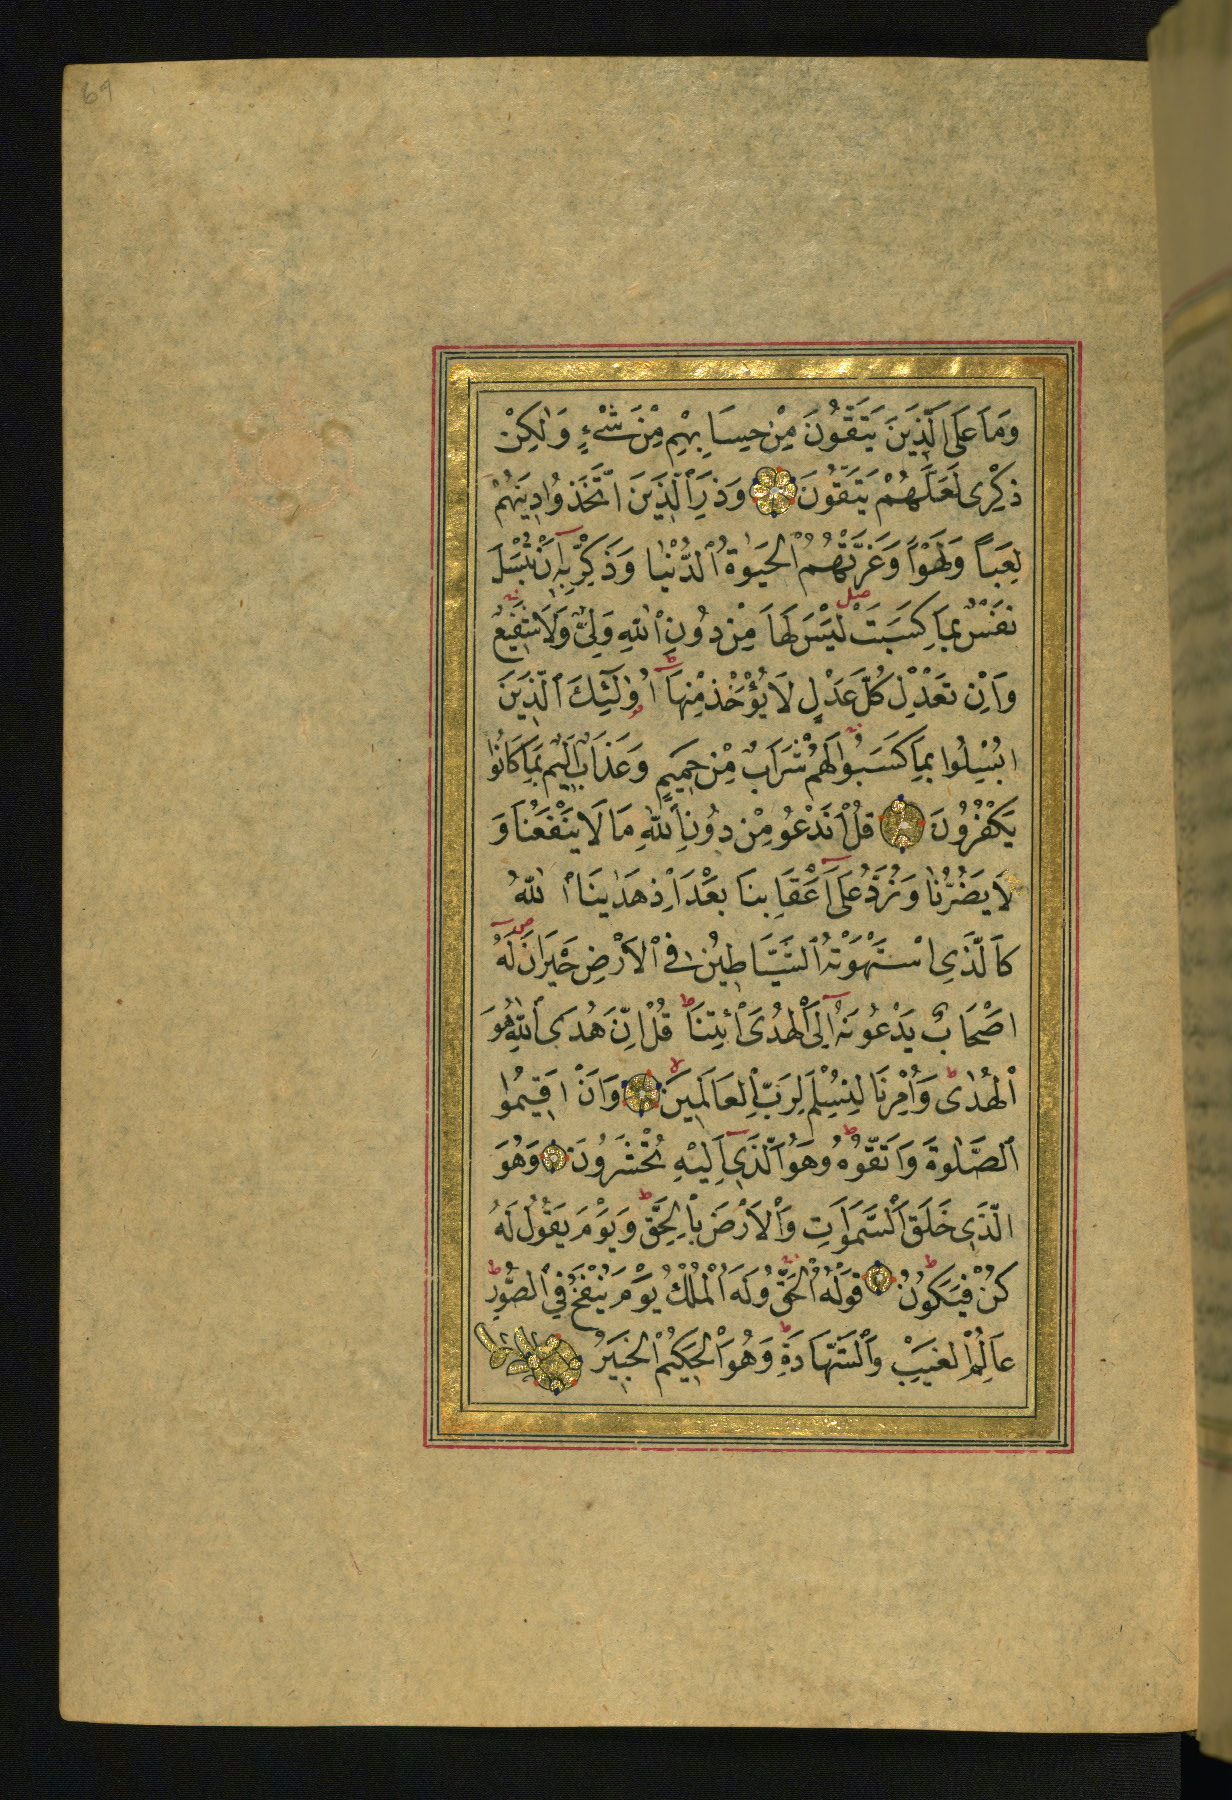 69
وَمَا عَلَى الَّذِينَ يَتَّقُونَ مِنْ حِسَابِهِمْ مِنْ شَىْءٍ وَلٰكِنْ
ذِكْرٰى لَعَلَّهُمْ يَتَّقُونَ وَذَرِ الَّذِينَ اتَّخَذُوا دِينَهُمْ
لَعِبًا وَلَهْوًا وَغَرَّتْهُمُ الْحَيٰوةُ الدُّنْيَا وَذَكِّرْ بِهٖ اَنْ تُبْسَلَ
نَفْسٌ بِمَا كَسَبَتْ لَيْسَ لَهَا مِنْ دُونِ اللّٰهِ وَلِىٌّ وَلَا شَفِيعٌ
وَاِنْ تَعْدِلْ كُلَّ عَدْلٍ لَا يُؤْخَذْ مِنْهَا اُولٰئِكَ الَّذِينَ
اُبْسِلُوا بِمَا كَسَبُوا لَهُمْ شَرَابٌ مِنْ حَمِيمٍ وَعَذَابٌ اَلِيمٌ بِمَا كَانُوا
يَكْفُرُونَ قُلْ اَنَدْعُو مِنْ دُونِ اللّٰهِ مَا لَا يَنْفَعُنَا وَ
لَا يَضُرُّنَا وَنُرَدُّ عَلٰى اَعْقَابِنَا بَعْدَ اِذْ هَدٰينَا اللّٰهُ
كَالَّذِى اسْتَهْوَتْهُ الشَّيَاطِينُ فِى الْاَرْضِ حَيْرَانَ لَهُ
اَصْحَابٌ يَدْعُونَهُ اِلَى الْهُدَى ائْتِنَا قُلْ اِنَّ هُدَى اللّٰهِ هُوَ
الْهُدٰى وَاُمِرْنَا لِنُسْلِمَ لِرَبِّ الْعَالَمِينَ وَاَنْ اَقِيمُوا
الصَّلٰوةَ وَاتَّقُوهُ وَهُوَ الَّذِى اِلَيْهِ تُحْشَرُونَ وَهُوَ
الَّذِى خَلَقَ السَّمٰوَاتِ وَالْاَرْضَ بِالْحَقِّ وَيَوْمَ يَقُولُ لَهُ
كُنْ فَيَكُونُ قَوْلُهُ الْحَقُّ وَلَهُ الْمُلْكُ يَوْمَ يُنْفَخُ فِى الصُّورِ
عَالِمُ الْغَيْبِ وَالشَّهَادَةِ وَهُوَ الْحَكِيمُ الْخَبِيرُ